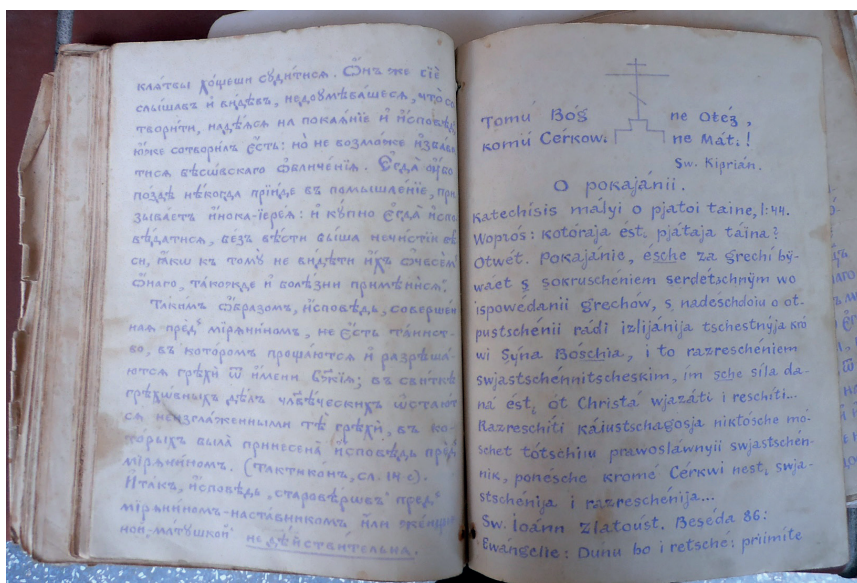 клѧ́твы хо́щеши сꙋди́тисѧ. Ѻ҆́нъ же сїѐ
слы́шавъ и҆ ви́дѣвъ, недоꙋмѣва́шесѧ, что̀ со
твори́ти, надѣ́ѧсѧ на покаѧ́нїе и҆ и҆спо́вѣдь
ю҆́же сотвори́лъ є҆́сть: но̀ не возмо́же и҆зба́ви
тисѧ бѣсѡ́вскаго ѡ҆бличе́нїѧ. Є҆гда̀ ᲂу҆́бо
по́здѣ нѣ́когда прїи́де въ помышле́нїе, при
зыва́етъ и҆́нока-їере́ѧ: и҆ кꙋ́пно є҆гда̀ и҆спо
вѣ́датисѧ, без̾ вѣ́сти бы́ша нечи́стїи бѣ
си, ꙗ҆́кѡ к томꙋ̀ не ви́дѣти и҆́хъ ѡ҆всѣ́мъ
ѻ҆́наго, та́кожде и҆ болѣ́зни примѣни́сѧ.
Таки́мъ ѻ҆́бразомъ, и҆́сповѣдь, соверше́н
наѧ пред̾ мірѧни́номъ, не є҆́сть та́инст-
во, въ кото́ромъ проща́ютсѧ и҆ разрѣша́-
ютсѧ грѣхѝ ѿ и҆́мени Бж҃їѧ; въ сви́ткѣ
грѣхо́вныхъ дѣ́лъ чл҃вѣ́ческихъ ѡ҆стаю́т
сѧ неизгла́женными тѣ̀ грѣхѝ, въ ко-
то́рыхъ была̀ принесена̀ и҆́сповѣдь пред̾
мірѧни́номъ. (Тактико́нъ, сл. 14-е).
И҆та́къ, и҆́сповѣдь „старовѣ́рцѡвъ” пред̾
мірѧни́номъ-наста́вникомъ и҆лѝ же́нщи
ной-„ма́тꙋшкой” недѣйстви́тельна.
Tomú Bóg ne Otéz,
komú Cérkow. ne Mát.!
Sw. Kiprián.
O pokajánii.
Katechísis mályi o pjatoi taine, l:44.
Woprós: kotóraja ést. pjátaja táina?
Otwét. Pokajánie, ésche za grechí bÿ-
wáet s sokruschéniem serdétschnÿm wo
ispowédanii grechów, s nadéschdoiu o ot-
pustschenii rádi izlijánija tschestnÿja kró
wi Sýna Bóschia, i to razreschéniem
swjastschénnitscheskim, im sche síla da-
ná ést, ót Christá wjazáti i reschíti...
Razreschíti káiustschagosja niktósche mó-
schet tótschiiu prawoslàwnyii swjastschén-
nik, ponésche kromé Cérkwi nest, swja-
stschénija i razreschénija...
Sw. Ioánn Zlatoúst. Beséda 86:
Ewángelie: Dunu bo i retsché: priimíte